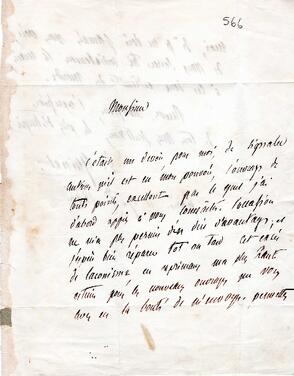 566
Monsieur
C'était un devoir pour moi de signaler
autant qu'il est en mon pouvoir, l'ouvrage de
tous points, excellent par le quel j'ai
d'abord appris à vous connaître. L'occasion
ne m'a pas permis d'en dire davantage, et
bien réparer tot ou tard cet
de laconisme en exprimant ma plus haute
estime pour le nouveau ouvrage que vous
avez eu la bonté de m'envoyer. permettez